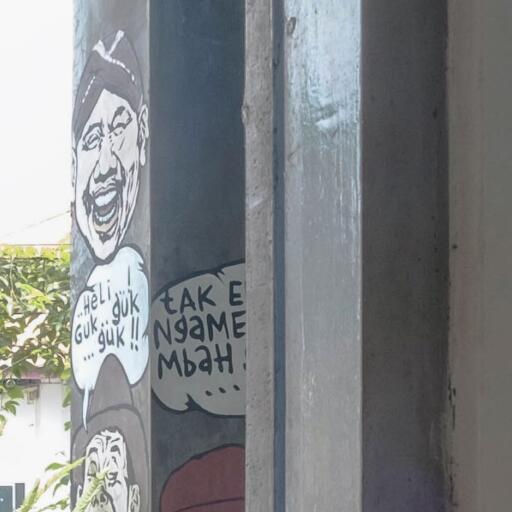 ..Heli..!
Guk..guk
..guk!!
tak e
ngame
mbah
...